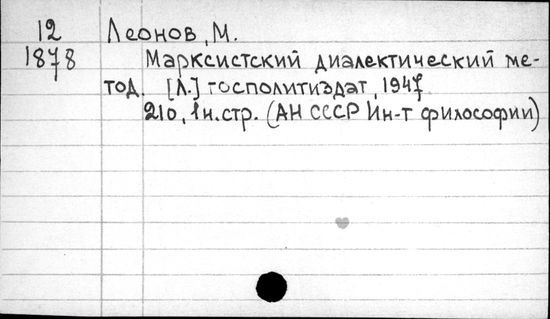 12 Леонов, М.
1878 Марксистский диалектический ме-
тод. [Л.] госполитиздат, 1947
210, 1н.стр. (АН СССР Ин-т философии)